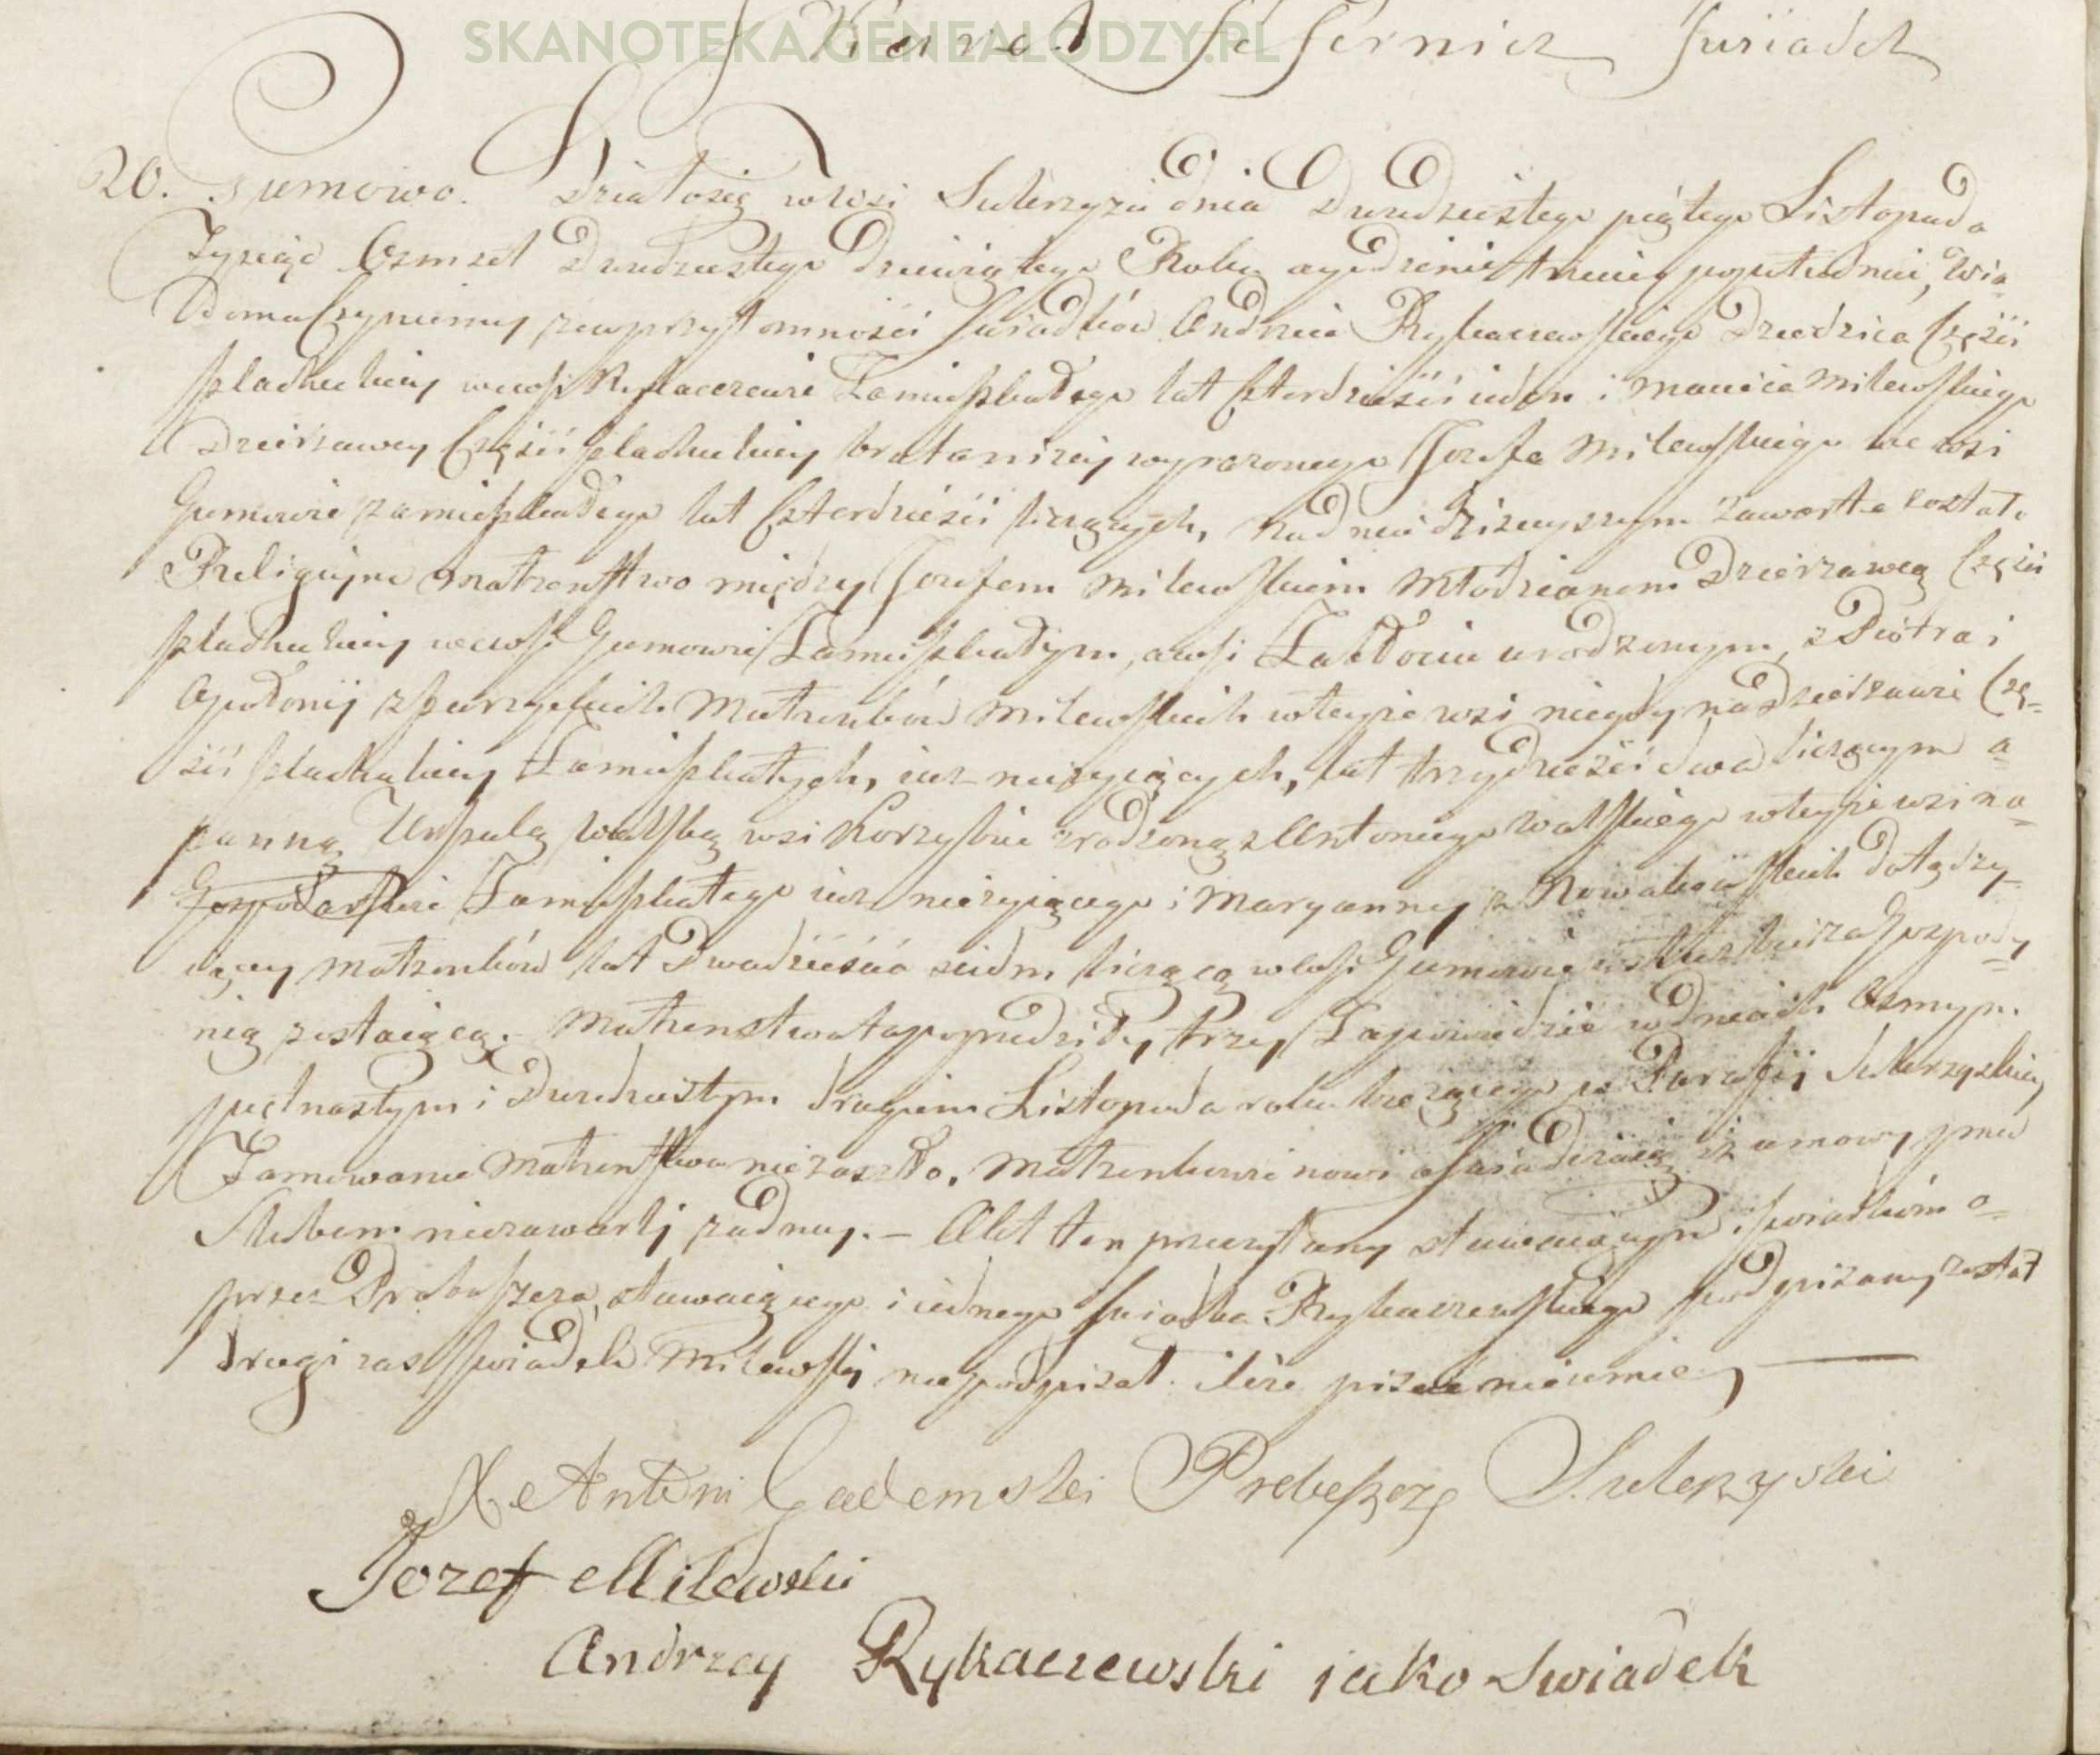 SKANOTEKA.GENEALODZY.PL
Karol Swiadek
20. Gumowo. Działosię w Wsi Sulerzyżu dnia Dwudziestego piątego Listopada
Tysiąc Osmset Dwudziestego Dziewiątego Roku o godzinie trzeciey popołudniu, Wia=
doma Czyniemy ze w przytomności Swiadków Andrzeia Rykaczewskiego Dziedzica Części
szlacheckiey we wsi Rykaczewie Zamieszkałego lat Czterdzieści ieden i Macieia Milewskiego
Dzierzawcy Części szlacheckiey brata niżey wyrażonego Jozefa Milewskiego we wsi
Gumowie zamieszkałego lat Czterdzieści liczących, na dniu dzisieyszym Zawarte zostało
Religijne Małzenstwo między Jozefem Milewskiem Młodzianem Dzierzawcą Części
szlacheckiey we wsi Gumowie Zamieszkałym, a wsi urodzonym, z Piotra i
Apolonij z Małzonków Milewskich w teyże wsi niegdy na Dzierzawie Czę=
ści szlacheckiey Zamieszkałych, iuz nieżyiących, lat trzydzieści dwa liczącym a=
panną Urszulą Walską wsi zrodzoną z Antoniego Walskiego w teyże wsi na=
Gospodarstwie Zamieszkałego iuz nieżyiącego i Maryanny z
Małzonków lat Dwadzieścia siedm liczącą w wsi Gumowie za Gospody=
nią zostaiącą. Małzenstwo to poprzedziły trzy Zapowiedzie w Dniach Osmym
piętnastym i Dwudziestym drugiem Listopada roku bieżącego w Parafij Sulerzyzkiey
Tamowanie Małzenstwa nie zaszło. Małzonkowie nowi oswiadczaią iż umowy przed
Slubem niezawarli zadney. – Akt ten przeczytany stawaiącym i swiadkom o=
przez Proboszcza, stawaiącego i iednego swiadka Rykaczewskiego podpisany został
drugi zas swiadek Milewski nie podpisał iż pisać nieumie
X Antoni Gademski Proboszcz Sulerzyski
Jozef Milewski
Andrzey Rykaczewski iako Swiadek